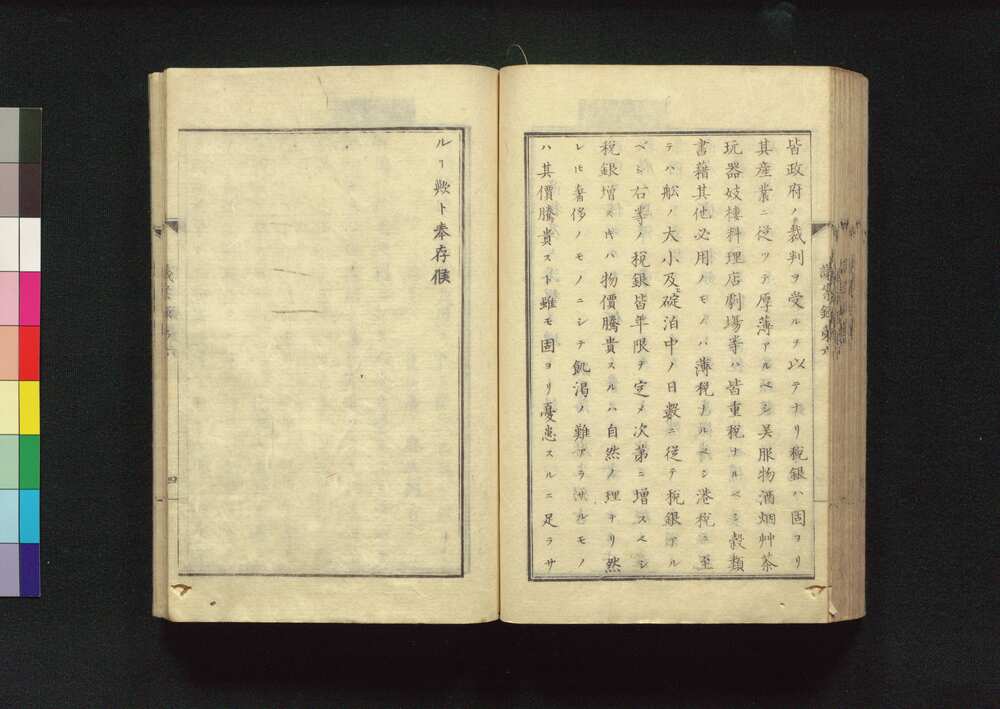 皆政府ノ裁判ヲ受ルヲ以テナリ税銀ハ固ヨリ
其産業ニ従ツテ厚薄アルベシ呉服物酒烟艸茶
玩器妓樓料理店劇場等ハ皆重税ナルベシ穀類
書籍其他必用ノモノハ薄税ナルベシ港税ニ至
テハ舩ノ大小及ヒ碇泊中ノ日數ニ従テ税銀アル
ベシ右等ノ税銀皆年限ヲ定メ次第ニ増スベシ
税銀増スキハ物價騰貴スルハ自然ノ理ナリ然
レ𪜈奢侈ノモノニシテ飢渇ノ難アラサルモノ
ハ其價騰貴スト雖モ固ヨリ憂患スルニ足ラサ
ルヿ歟ト奉存候
四